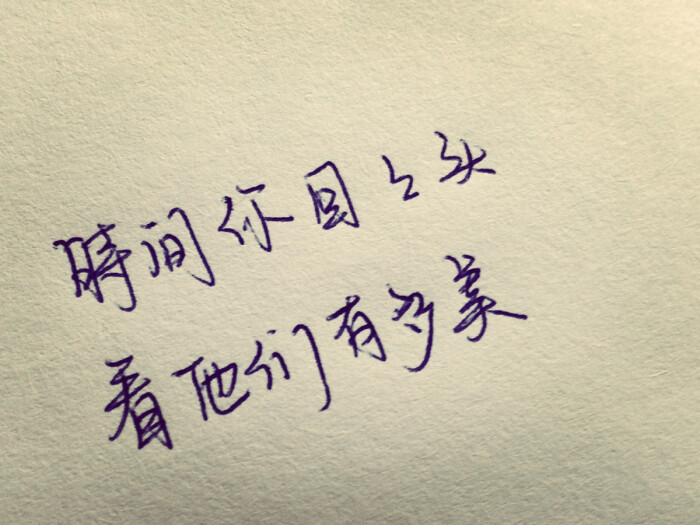 時间你回上头
看他们有多美